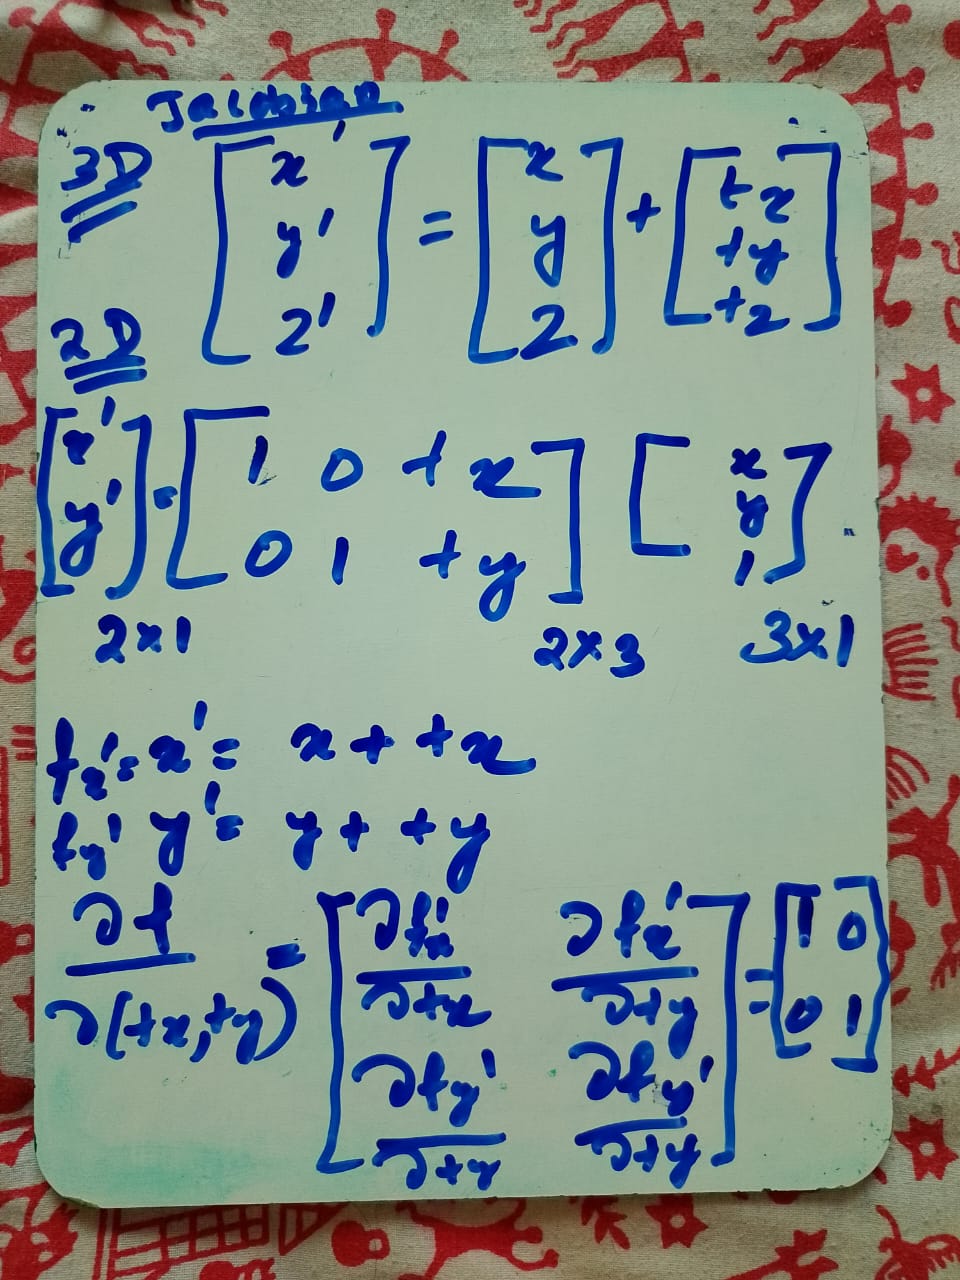 Jacobian
3D [x' y' z'] = [x y z] + [tx ty tz]
2D
[x' y'] = [1 0 tx
0 1 ty] [x y 1]
2x1 2x3 3x1
fx' = x' = x + tx
fy' y' = y + ty
∂f / ∂(tx,ty) = [∂fx'/∂tx ∂fx'/∂ty
∂fy'/∂tx ∂fy'/∂ty] = [1 0
0 1]